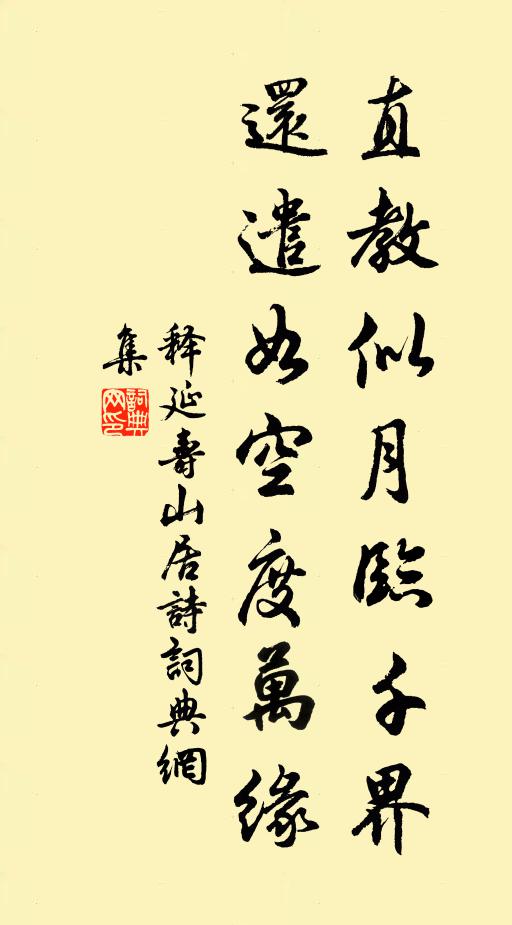 直教似月臨千界
還遣如空度萬緣
释延壽山居詩詞典網
集
詞典网印